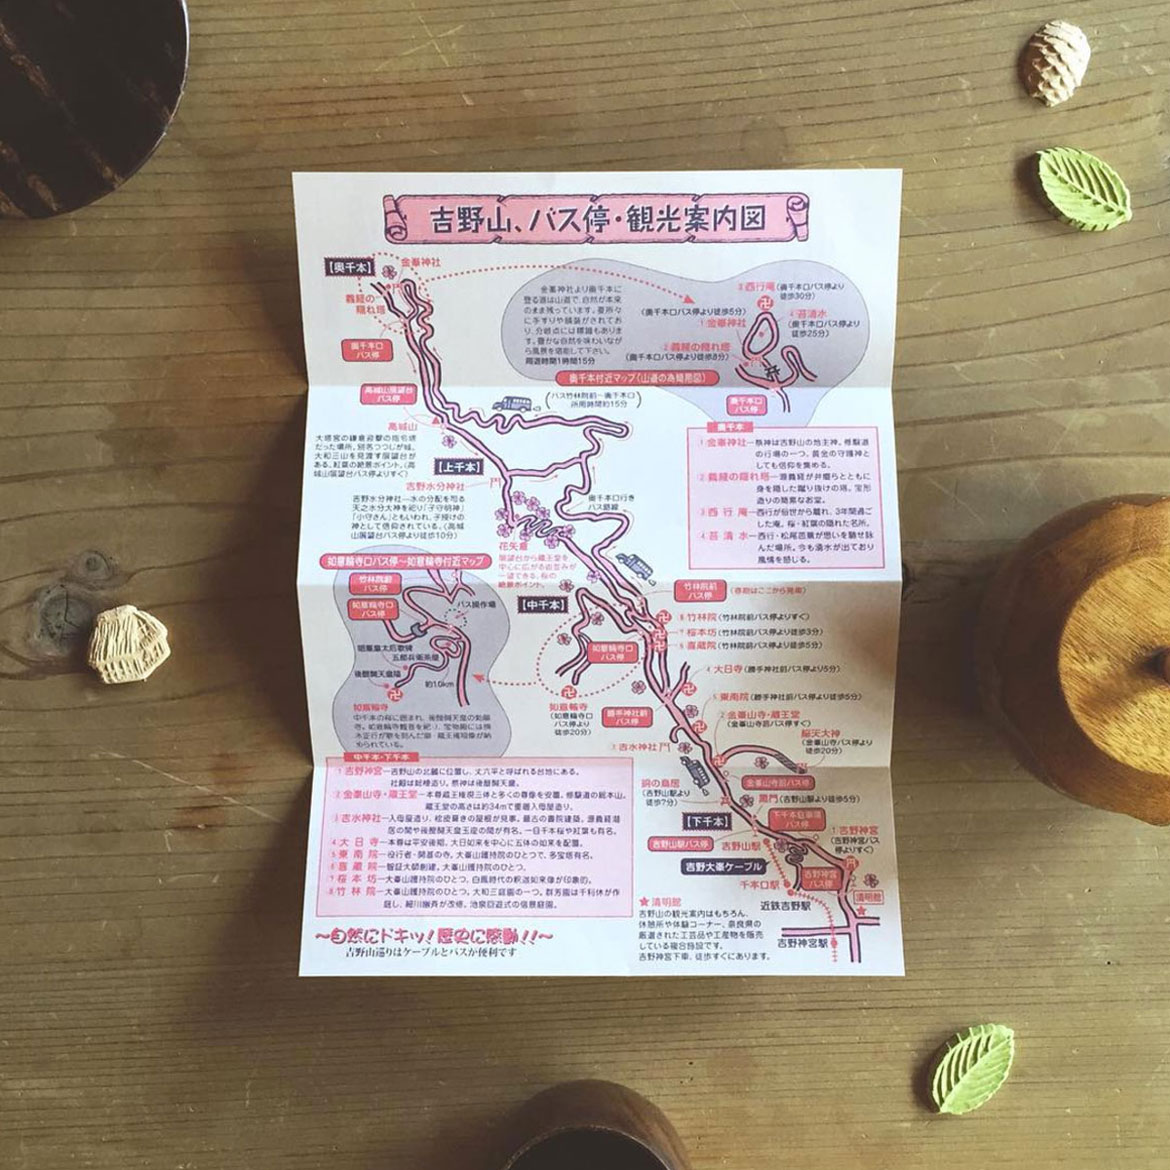 吉野山、バス停・観光案内図
【奥千本】
金峯神社
義経の
隠れ塔
奥千本口
バス停
金峯神社より奥千本に
登る道は山道で、自然が本来
のまま残っています。要所々
に手すりや舗装がされてお
り、分岐点には標識もありま
す。豊かな自然を味わいなが
ら風景を堪能して下さい。
周遊時間1時間15分
3西行庵(奥千本口バス停より
徒歩30分)
(奥千本口バス停より徒歩5分)
1金峯神社
4苔清水
(奥千本口バス停より
徒歩25分)
2義経の隠れ塔
(奥千本口バス停より徒歩8分)
奥千本付近マップ(山道の為簡略図)
奥千本口
バス停
高城山展望台
バス停
(バス竹林院前〜奥千本口
所用時間約15分)
高城山
大塔宮の鎌倉迎撃の指令塔
だった場所。別名つつじが城。
大和三山を見渡す展望台が
ある。紅葉の絶景ポイント。(高
城山展望台バス停よりすぐ)
【上千本】
吉野水分神社
吉野水分神社―水の分配を司る
天之水分大神を祀り「子守明神」
「小守さん」ともいわれ、子授けの
神として信仰されている。(高城
山展望台バス停より徒歩10分)
奥千本口行き
バス路線
奥千本
1金峯神社―祭神は吉野山の地主神。修験道
の行場の一つ。黄金の守護神と
しても信仰を集める。
2義経の隠れ塔―源義経が弁慶らとともに
身を隠した蹴り抜けの塔。宝形
造りの簡素なお堂。
3西行庵―西行が俗世から離れ、3年間過ご
した庵。桜・紅葉の隠れた名所。
4苔清水―西行・松尾芭蕉が思いを馳せ詠
んだ場所。今も湧水が出ており
風情を感じる。
花矢倉
展望台から蔵王堂を
中心に広がる街並みが
一望できる。桜の
絶景ポイント。
如意輪寺口バス停〜如意輪寺付近マップ
竹林院前
バス停
如意輪寺口
バス停
バス操作場
五郎兵衛茶屋
後醍醐天皇陵
約1.0km
如意輪寺
【中千本】
竹林院前
バス停
8竹林院(竹林院前バス停よりすぐ)
7桜本坊(竹林院前バス停より徒歩3分)
6喜蔵院(竹林院前バス停より徒歩5分)
如意輪寺口
バス停
4大日寺(勝手神社前バス停より5分)
5東南院(勝手神社前バス停より徒歩5分)
如意輪寺
(如意輪寺口
バス停より
徒歩20分)
勝手神社前
バス停
2金峯山寺・蔵王堂
(金峯山寺前バス停すぐ)
脳天大神
(金峯山寺バス停より
徒歩20分)
3吉水神社
金峯山寺前バス停
銅の鳥居
(吉野山駅より
徒歩7分)
黒門(吉野山駅より徒歩5分)
【下千本】
下千本駐車場
バス停
吉野山駅バス停
吉野山駅
1吉野神宮
(吉野神宮バス停
よりすぐ)
吉野大峯ケーブル
千本口駅
吉野神宮
バス停
近鉄吉野駅
清明館
吉野神宮駅
中千本・下千本
1吉野神宮―吉野山の北麓に位置し、丈六平と呼ばれる台地にある。
社殿は総桧造り。祭神は後醍醐天皇。
2金峯山寺・蔵王堂―本尊蔵王権現三体と多くの尊像を安置。修験道の総本山。
蔵王堂の高さは約34mで重層入母屋造り。
3吉水神社―入母屋造り、桧皮葺きの屋根が見事。最古の書院建築。源義経潜
居の間や後醍醐天皇玉座の間が有名。一目千本桜や紅葉も有名。
4大日寺―本尊は平安後期。大日如来を中心に五体の如来を配置。
5東南院―役行者・開基の寺。大峯山護持院のひとつで、多宝塔有名。
6喜蔵院―智証大師創建。大峯山護持院のひとつ。
7桜本坊―大峯山護持院のひとつ。白鳳時代の釈迦如来像が印象的。
8竹林院―大峯山護持院のひとつ。大和三庭園の一つ。群芳園は千利休が作
庭し、細川幽斉が改修。池泉回遊式の借景庭園。
〜自然にドキッ!歴史に感動!!〜
吉野山巡りはケーブルとバスが便利です
★清明館
吉野山の観光案内はもちろん、
休憩所や体験コーナー、奈良県の
厳選された工芸品や土産物を販売
している複合施設です。
吉野神宮下車、徒歩すぐにあります。